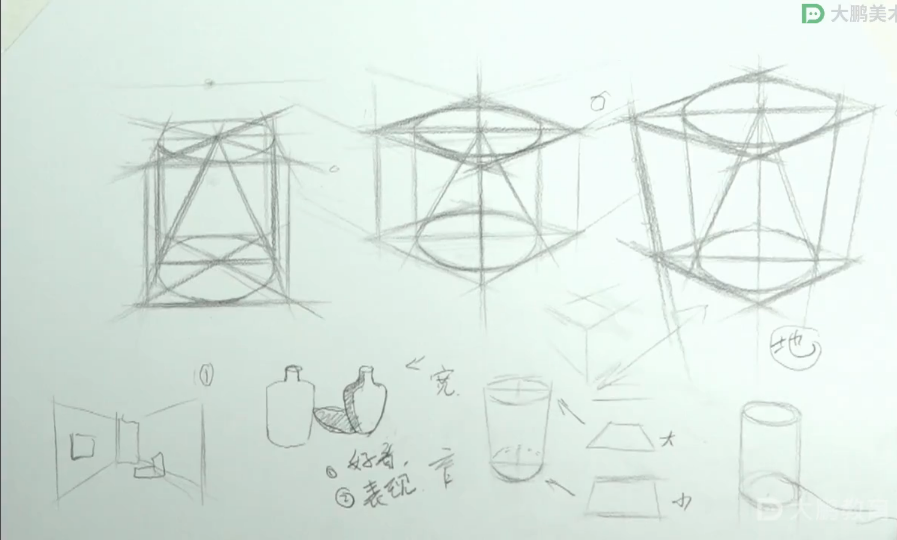 大鹏美术
地
①
宽
① 好看.
② 表现
大
小
大鹏教育